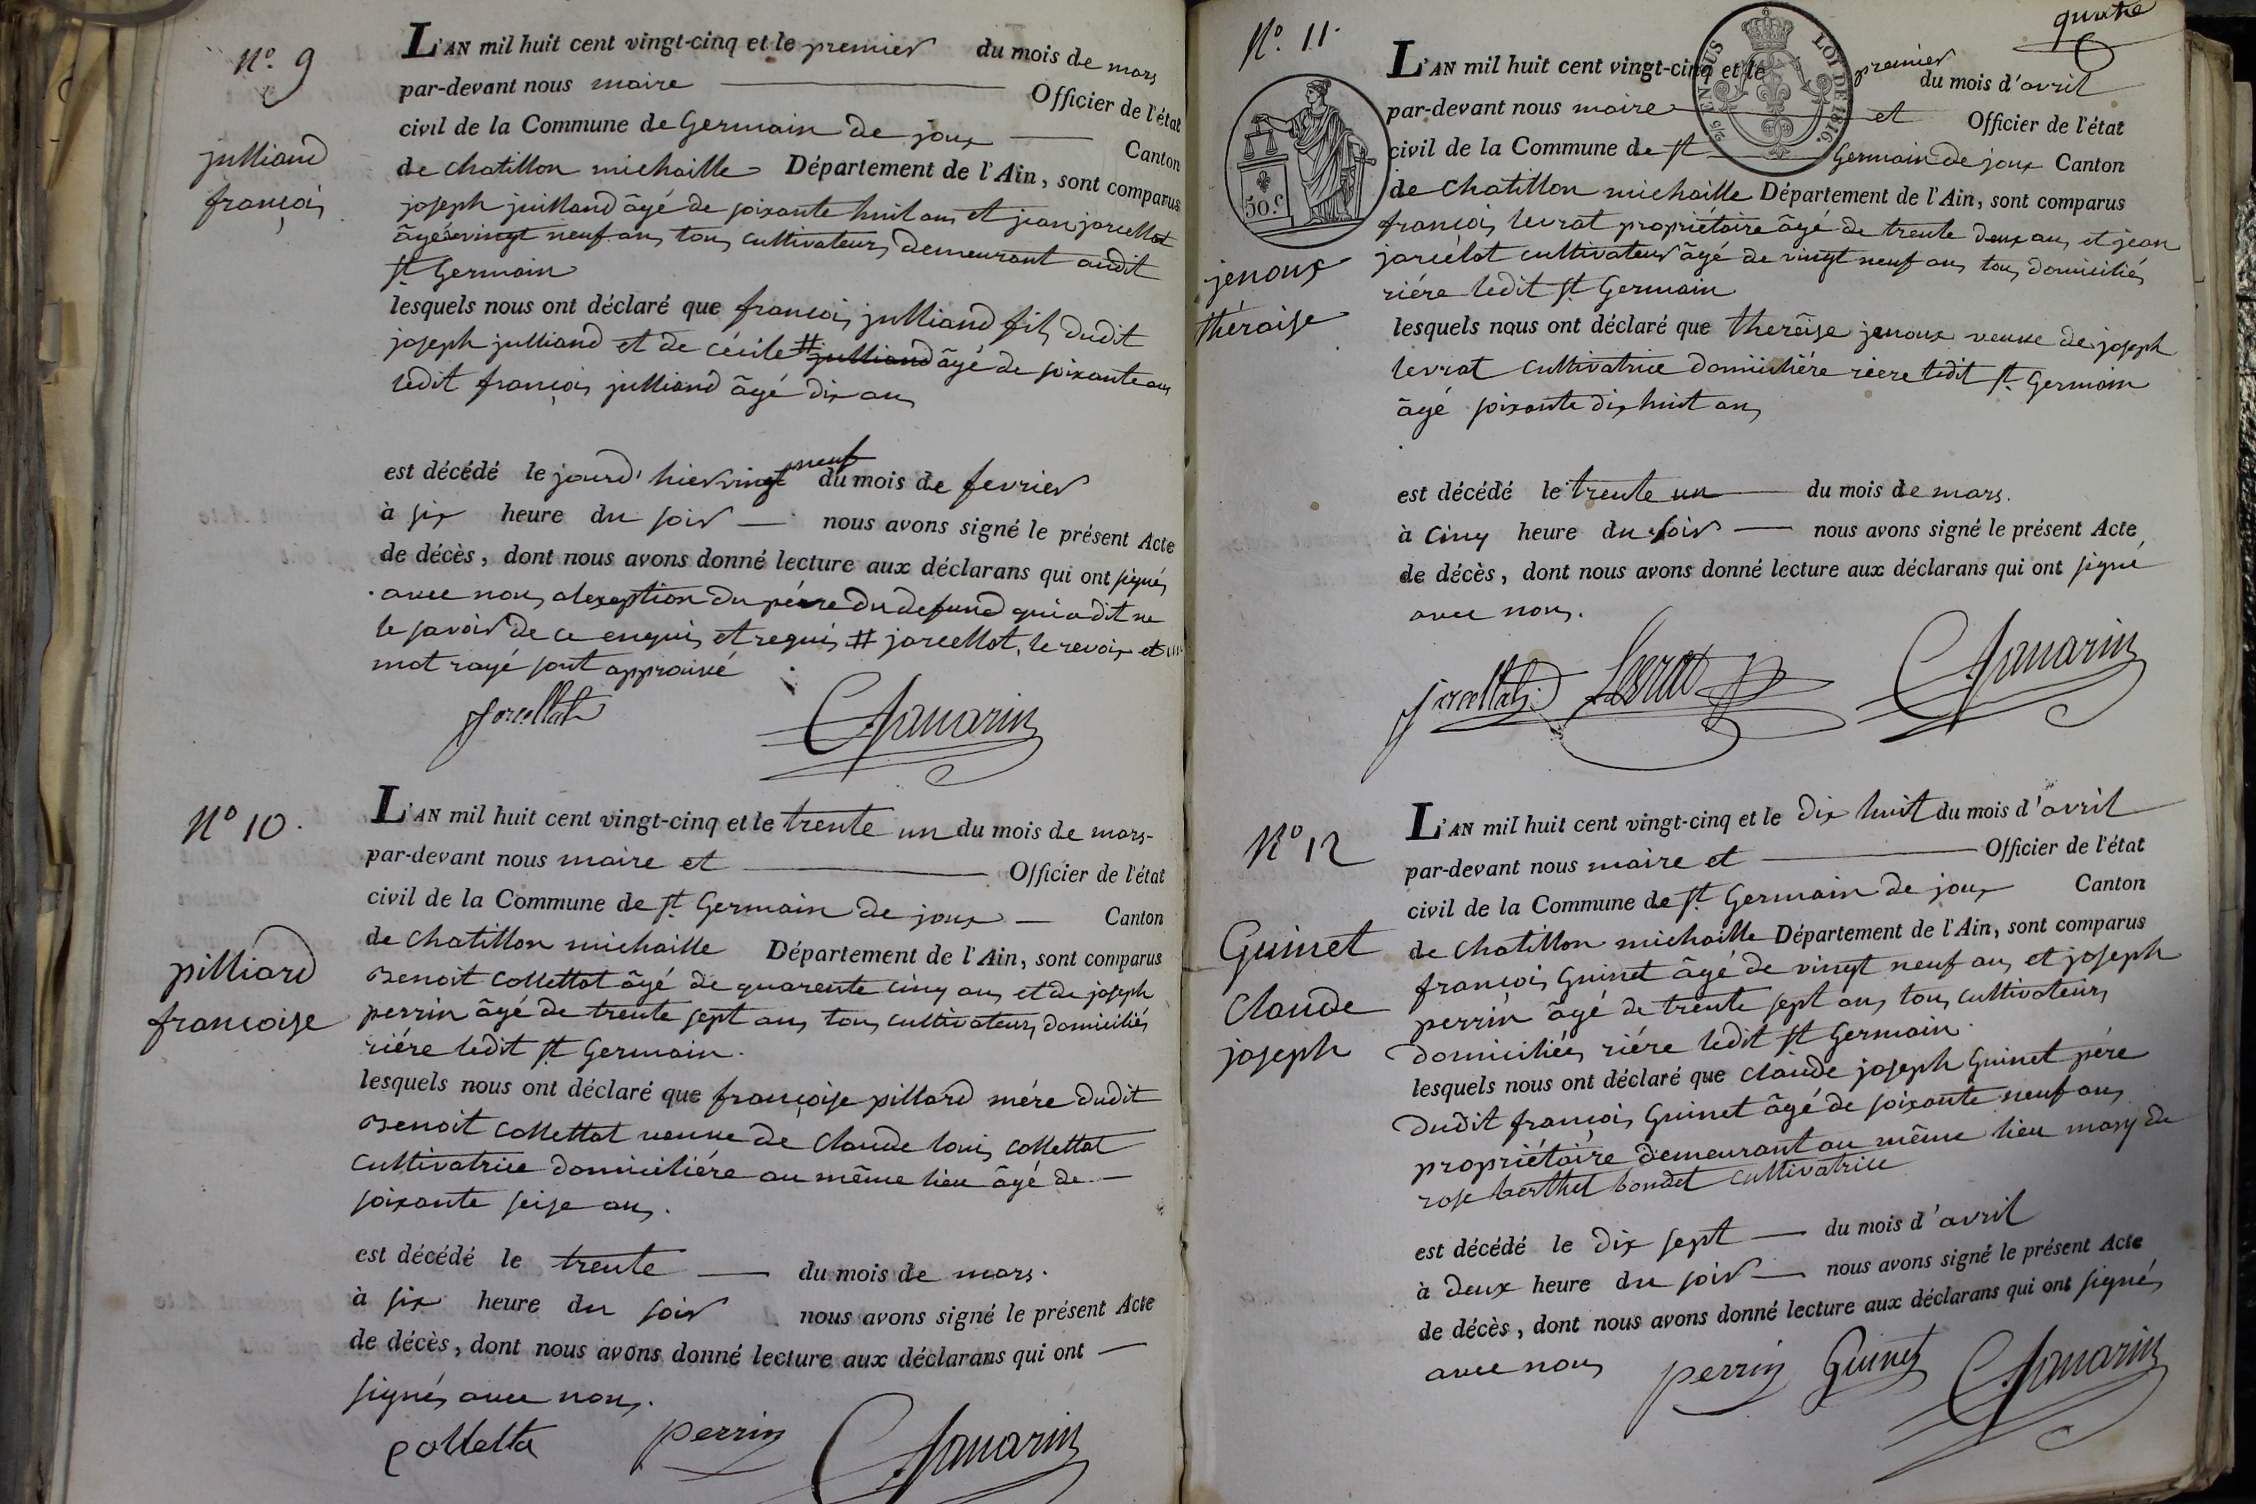 N.º 9
julliand
françois
L'AN mil huit cent vingt-cinq et le premier du mois de mars
par-devant nous maire Officier de l'état
civil de la Commune de Germain de joux Canton
de chatillon michaille Département de l'Ain, sont comparus
joseph juilland âgé de soixante huit ans et jean jarcellot
âgé de vingt neuf ans tous cultivateurs demeurant audit
st Germain
lesquels nous ont déclaré que françois julliand fils dudit
joseph julliand et de cécile # julliand âgé de soixante ans
ledit françois julliand âgé dix ans
est décédé le jourd'hier vingt neuf du mois de fevrier
à six heure du soir nous avons signé le présent Acte
de décès, dont nous avons donné lecture aux déclarans qui ont signés
avec nous a l'exception du père du defund qui a dit ne
le savoir de ce enquis et requis # jarcellot, le revoix et un
mot rayé sont approuvé
Jarcellot
Chanarin
N.º 10.
pilliard
francoise
L'AN mil huit cent vingt-cinq et le trente un du mois de mars
par-devant nous maire et Officier de l'état
civil de la Commune de st Germain de joux Canton
de chatillon michaille Département de l'Ain, sont comparus
Benoit collettat âgé de quarente cinq ans et de joseph
perrin âgé de trente sept ans tous cultivateurs domiciliés
riére ledit st Germain.
lesquels nous ont déclaré que françoise pillard mére dudit
Benoit collettat veuve de claude louis collettat
cultivatrice domiciliére au même lieu âgé de
soixante seise ans.
est décédé le trente du mois de mars.
à six heure du soir nous avons signé le présent Acte
de décès, dont nous avons donné lecture aux déclarans qui ont
signés avec nous.
colletta perrin Chanarin
quatre
N.º 11.
EN SUS LOI DE 1816.
50.c
jenoux
théraise
L'AN mil huit cent vingt-cinq et le premier du mois d'avril
par-devant nous maire et Officier de l'état
civil de la Commune de st Germain de joux Canton
de chatillon michaille Département de l'Ain, sont comparus
françois levrat propriétaire âgé de trente deux ans et jean
jarcélot cultivateur âgé de vingt neuf ans tous domiciliés
riére ledit st Germain
lesquels nous ont déclaré que theréise jenoux veuve de joseph
levrat cultivatrice domiciliére riere ledit st Germain
âgé soixante dix huit ans
est décédé le trente un du mois de mars.
à cinq heure du soir nous avons signé le présent Acte
de décès, dont nous avons donné lecture aux déclarans qui ont signé
avec nous.
Jarcellot Levrat Chanarin
N.º 12
Guinet
claude
joseph
L'AN mil huit cent vingt-cinq et le dix huit du mois d'avril
par-devant nous maire et Officier de l'état
civil de la Commune de st Germain de joux Canton
de chatillon michaille Département de l'Ain, sont comparus
françois Guinet âgé de vingt neuf ans et joseph
perrin âgé de trente sept ans tous cultivateurs
domiciliées riére ledit st Germain.
lesquels nous ont déclaré que claude joseph Guinet pére
dudit françois Guinet âgé de soixante neuf ans
propriétaire demeurant au même lieu mary de
rose berthet bondet cultivatrice
est décédé le dix sept du mois d'avril
à deux heure du soir nous avons signé le présent Acte
de décès, dont nous avons donné lecture aux déclarans qui ont signés
avec nous perrin Guinet Chanarin